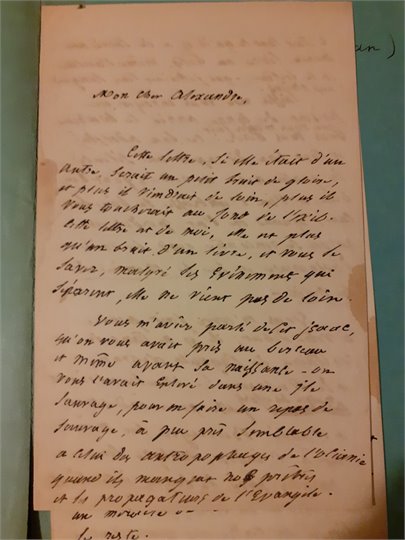 an)
Mon cher Alexandre,
Cette lettre, si elle était d'un
autre, serait un petit bruit de gloire,
et plus il viendrait de loin, plus il
vous toucherait au fond de
Cette lettre est de moi, elle n'est plus
qu'un bruit d'un livre, et vous le
savez, malgré les événemens qui
séparent, elle ne vient pas de loin.
Vous m'avez parlé de cet
qu'on vous avait pris au berceau
et même avant sa naissance - on
vous l'avait enlevé dans une île
sauvage, pour en faire un repas de
sauvage, à peu près semblable
à celui des antropophages de l'Océanie
quand ils mangent nos prêtres
et les propagateurs de l'Evangile.
un
le reste.